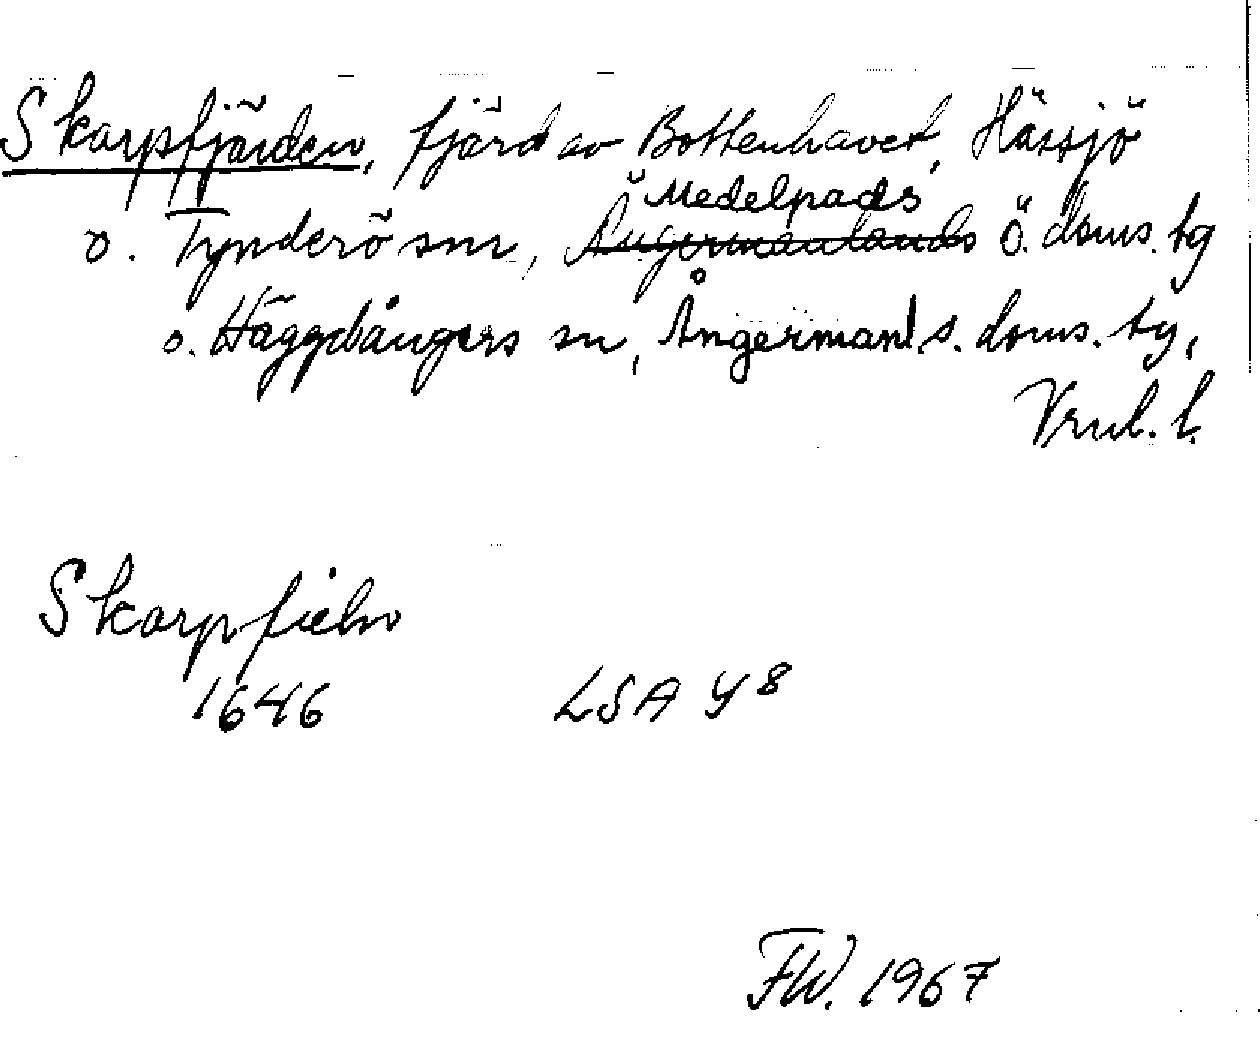 Skarpfjärden, fjärd av Bottenhavet, Hässjö
o. Tynderö snr, Medelpads Ö. doms. tg
o. Häggdångers sn, Ångermanl. s. doms. tg,
Vrnl. l.
Skarpfieln
1646 LSA Y 8
FW. 1967